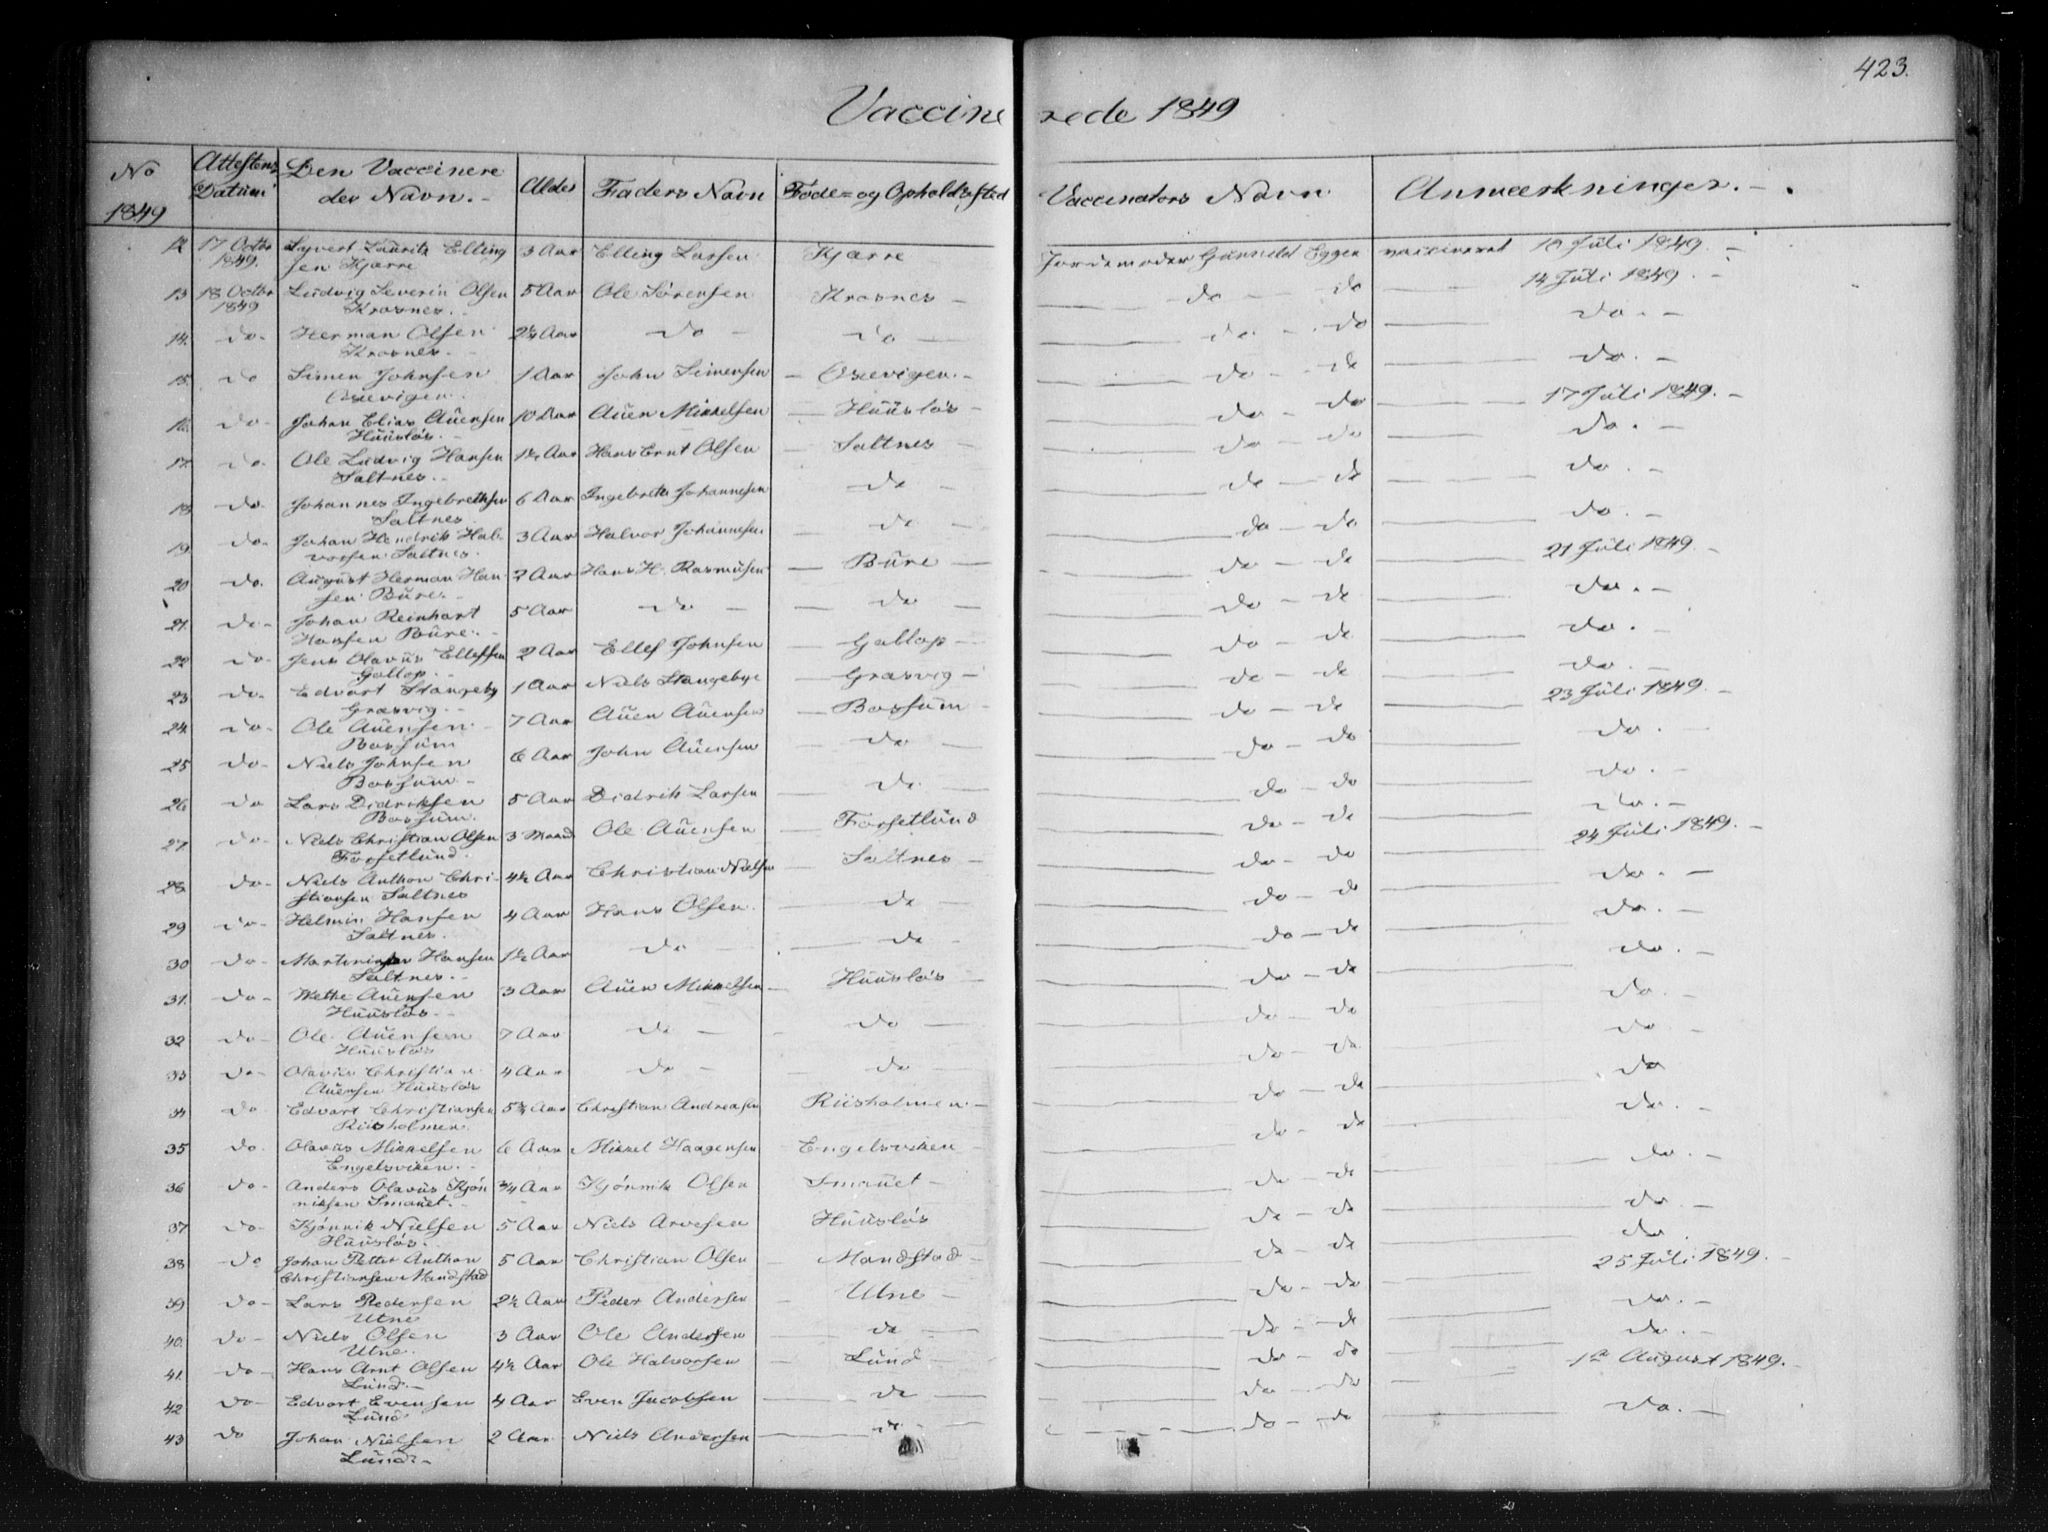 423.
Vaccinerede 1849
No 1849 Attestens Datum Den Vaccineredes Navn.- Alder Faders Navn Føde= og Opholdssted Vaccinators Navn Anmærkninger.-
12. 17 Octbr 1849. Syvert Lauritz Elling 3 Aar Elling Larsen Kjærre Jordemoder Gunnild Eggen vaccineret 10 Juli 1849.
sen Kjærre
13 18 Octbr 1849 Ludvig Severin Olsen 5 Aar Ole Sørensen Krosnes - do - do 14 Juli 1849.
Krosnes.-
14. do- Herman Olsen 2½ Aar do - do do - do do.-
Krosnes.-
15. do Simen Johnsen 1 Aar John Simensen - Osevigen.- do - do do.-
Osevigen.
16. do- Johan Elias Auensen 10 Aar Auen Mikkelsen - Huusløs - do - do 17 Juli 1849.-
Huusløs.-
17. do- Ole Ludvig Hansen 1½ Aar Hans Ernt Olsen Saltnes - do - do do.-
Saltnes.-
18. do Johannes Ingebrethsen 6 Aar Ingebreth Johannesen do - do - do do.-
Saltnes
19. do- Johan Hendrik Hal- 3 Aar Halvor Johannesen do - do - do do.-
vorsen Saltnes.
20 do. August Herman Han- 2 Aar Hans H. Rasmusen - Bure - do - do 21 Juli 1849.-
sen Bure.-
21. do- Johan Reinhart 5 Aar do - do - do - do do.-
Hansen Bure.-
22 do- Jens Olavus Ellefsen 2 Aar Ellef Johnsen Gallop - do - do do.-
Gallop.-
23 do- Edvart Stangeby 1 Aar Niels Stangebye Græsvig - do - do do.-
Græsvig.-
24. do Ole Auensen 7 Aar Auen Auensen - Bossum - do - do 23 Juli 1849.-
Bossum
25 do- Niels Johnsen 6 Aar John Auensen do - do - do do.
Bossum.-
26 do Lars Didriksen 5 Aar Didrik Larsen do - do - do do.-
Bossum.
27 do- Niels Christian Olsen 3 Maand Ole Auensen - Forsetlund do - do do.-
Forsetlund.
28. do- Niels Anthon Chri- 4½ Aar Christian Nielsen Saltnes - do - do 24 Juli 1849.-
stiansen Saltnes
29 do- Helmin Hansen 4 Aar Hans Olsen do - do - do do.-
Saltnes.
30 do- Hansen 1½ Aar do do - do - do do.-
Saltnes.-
31. do- Methe Auensen 3 Aar Auen Mikkelsen - Huusløs - do - do do.-
Huusløs.-
32 do- Ole Auensen 7 Aar do - do - do - do do.-
Huusløs
33 do- Olavus Christian 4 Aar do - do - do - do do.-
Auensen Huusløs
34 do Edvart Christiansen 5¾ Aar Christian Andreasen Riisholmen.- do - do do
Riisholmen.
35 do Olavus Mikkelsen 6 Aar Mikkel Haagensen Engelsviken - do - do do.-
Engelsviken.-
36 do- Anders Olavus Kjøn ¾ Aar Kjønnik Olsen Smauet - do - do do.-
niksen Smauet.-
37 do- Kjønnik Nielsen 5 Aar Niels Arvesen Huusløs do - do do.-
Huusløs.-
38 do Johan Petter Anthon 5 Aar Christian Olsen Mandstad - do - do do.
Christiansen Mandstad
39 do- Lars Pedersen 2½ Aar Peder Andersen Utne - do - do 25 Juli 1849.-
Utne
40. do- Niels Olsen 3 Aar Ole Andersen do - do - do do.-
Utne.
41. do- Hans Arnt Olsen 4½ Aar Ole Halvorsen - Lund - do - do do.-
Lund.-
42 do- Edvart Evensen 4 Aar Even Jacobsen do - do - do 1ste August 1849.-
Lund
43 do Johan Nielsen 2 Aar Niels Andersen do. - do - do do.-
Lund.-